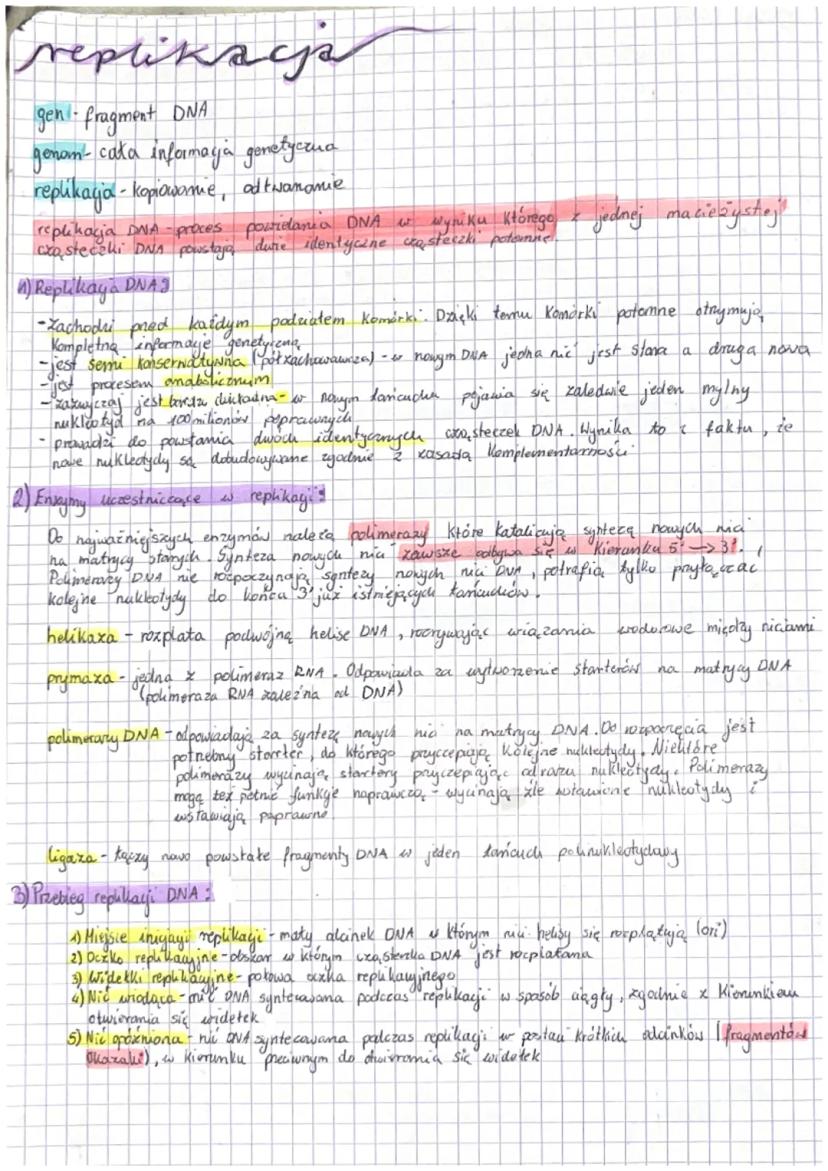 replikacja
gen - fragment DNA
genom - cała informacja genetyczna
replikacja - kopiowanie, odtwarzanie
replikacja DNA - proces powielania DNA w wyniku którego z jednej macierzystej
cząsteczki DNA powstają dwie identyczne cząsteczki potomne.
1) Replikacja DNA:
- Zachodzi przed każdym podziałem komórki. Dzięki temu komórki potomne otrzymują
kompletną informację genetyczną
- jest semi konserwatywna (półzachowawcza) - w nowym DNA jedna nić jest stara a druga nowa
- jest procesem anabolicznym
- zazwyczaj jest bardzo dokładna - w nowym łańcuchu pojawia się zaledwie jeden mylny
nukleotyd na 100 milionów poprawnych
- prowadzi do powstania dwóch identycznych cząsteczek DNA. Wynika to z faktu, że
nowe nukleotydy są dobudowywane zgodnie z zasadą komplementarności
2) Enzymy uczestniczące w replikacji:
Do najważniejszych enzymów należą polimerazy które katalizują syntezę nowych nici
na matrycy starych. Synteza nowych nici zawsze odbywa się w kierunku 5' → 3'.
Polimerazy DNA nie rozpoczynają syntezy nowych nici DNA, potrafią tylko przyłączać
kolejne nukleotydy do końca 3' już istniejących łańcuchów.
helikaza - rozplata podwójną helisę DNA, rozrywając wiązania wodorowe między niciami
prymaza - jedna z polimeraz RNA. Odpowiada za wytworzenie starterów na matrycy DNA
(polimeraza RNA zależna od DNA)
polimerazy DNA - odpowiadają za syntezę nowych nici na matrycy DNA. Do rozpoczęcia jest
potrzebny starter, do którego przyczepiają kolejne nukleotydy. Niektóre
polimerazy wycinają startery przyczepiając od razu nukleotydy. Polimerazy
mogą też pełnić funkcję naprawczą - wycinają źle wstawione nukleotydy i
wstawiają poprawne
ligaza - łączy nowo powstałe fragmenty DNA w jeden łańcuch polinukleotydowy
3) Przebieg replikacji DNA:
1) Miejsce inicjacji replikacji - mały odcinek DNA w którym nici helisy się rozplątują (ori)
2) Oczko replikacyjne - obszar w którym cząsteczka DNA jest rozplatana
3) Widełki replikacyjne - połowa oczka replikacyjnego
4) Nić wiodąca - nić DNA syntezowana podczas replikacji w sposób ciągły, zgodnie z kierunkiem
otwierania się widełek
5) Nić opóźniona - nić DNA syntezowana podczas replikacji w postaci krótkich odcinków (fragmentów
Okazaki), w kierunku przeciwnym do otwierania się widełek